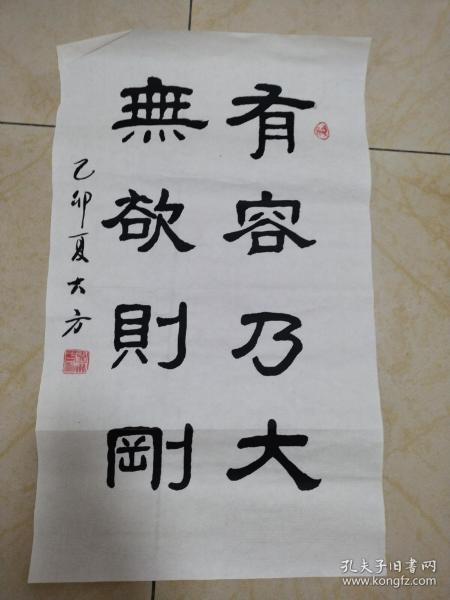 有容乃大
無欲則剛
乙卯夏大方
孔夫子旧书网
www.kongfz.com